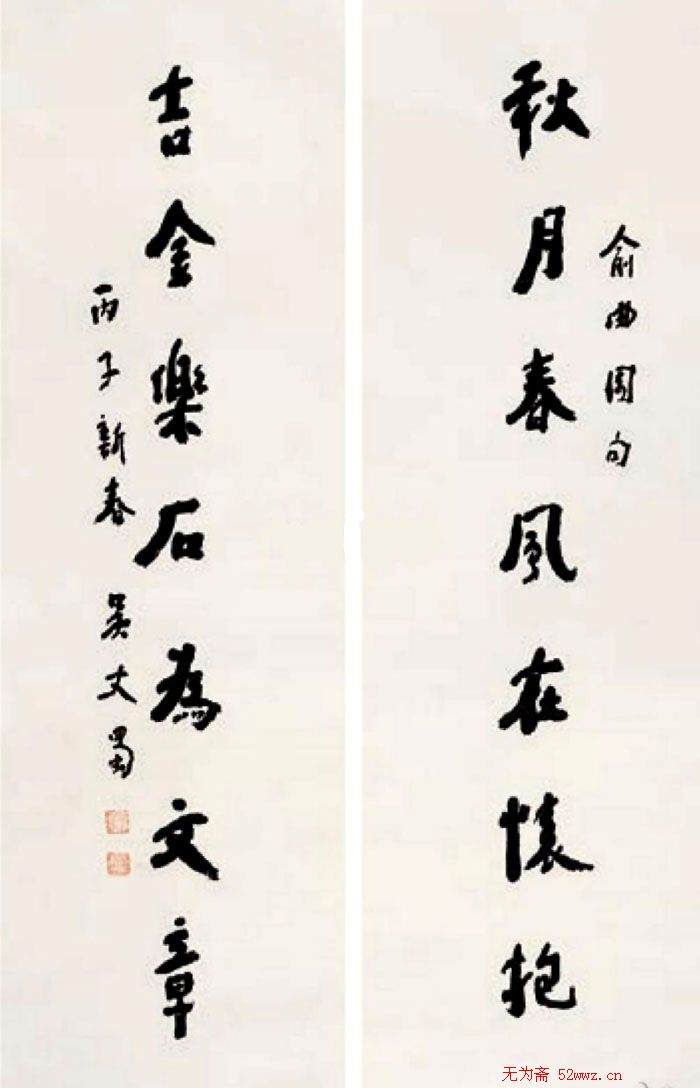 俞曲園句
秋月春風在懷抱
吉金樂石為文章
丙子新春 吳丈蜀
无为斋 52wwz.cn